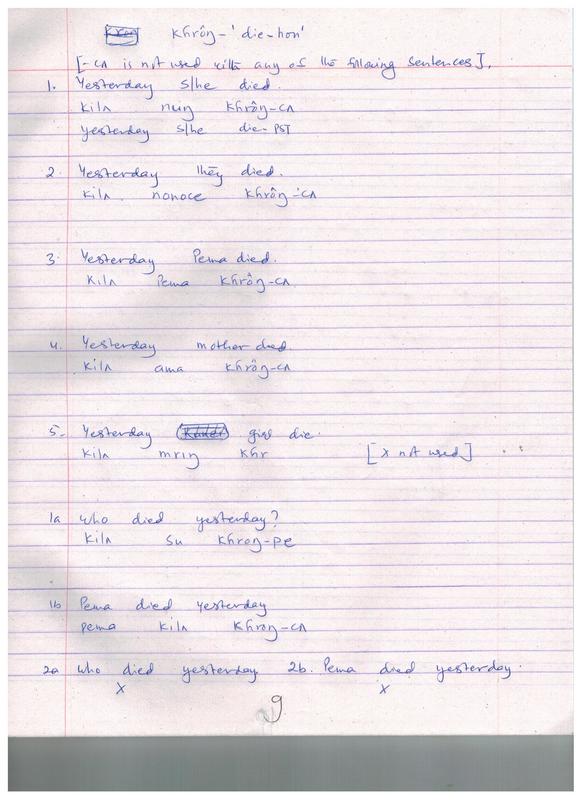 khrôŋ - 'die-hon'
[-cʌ is not used with any of the following sentences].
1. Yesterday s/he died.
kilʌ nuŋ khrôŋ-cʌ
yesterday s/he die-PST
2. Yesterday they died.
kilʌ nonoce khrôŋ-cʌ
3. Yesterday Pema died.
kilʌ Pema khrôŋ-cʌ
4. Yesterday mother died
kilʌ ama khrôŋ-cʌ
5. Yesterday girl die.
kilʌ mrıŋ khr [x not used]
1a who died yesterday?
kilʌ su khroŋ-pe
1b Pema died yesterday
pema kilʌ khroŋ-cʌ
2a who died yesterday 2b. Pema died yesterday.
x x
9